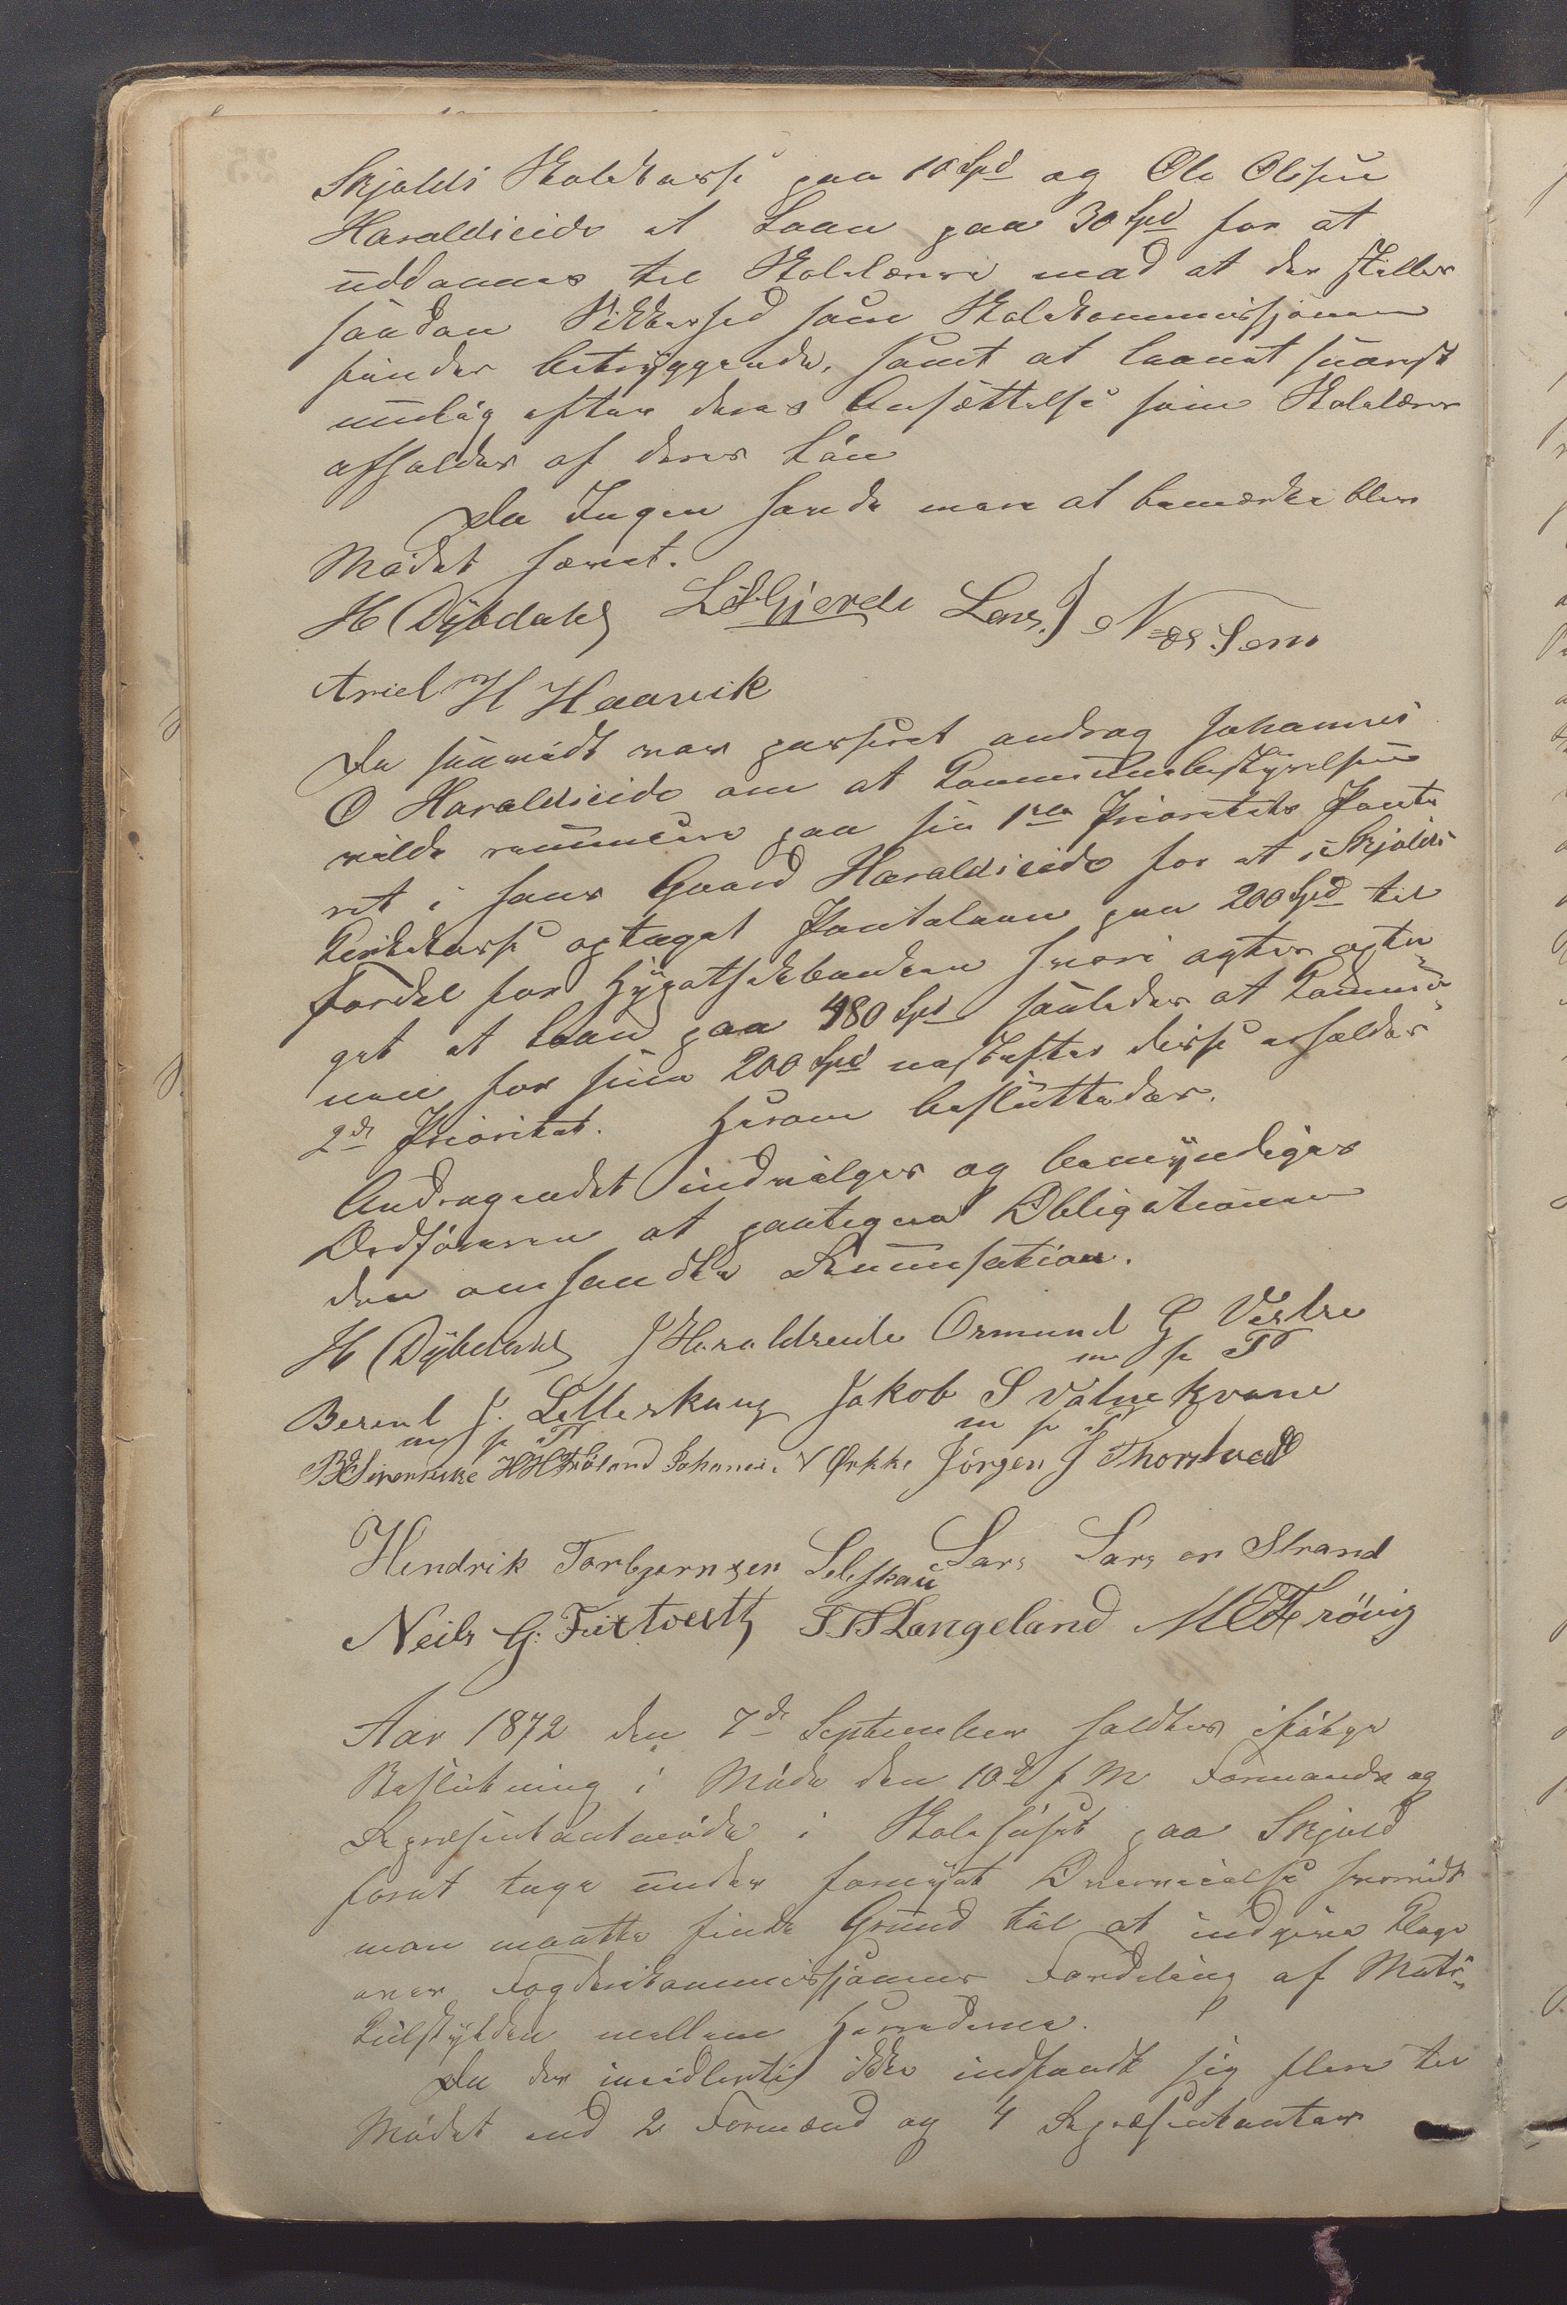 Skjolds Skolekasse paa 10 Spd og Ole Olsen
Haraldseide et Laan paa 30 Spd for at
uddannes til Skolelærere mod at der stilles
saadan Sikkerhed som Skolekommissjonen
finder betryggende, samt at laanet snarest
mulig efter deres Ansættelse som Skolelærer
afholdes af deres Løn
Da Ingen havde mere at bemærke blev
Mødet hævet.
H Dybdahl L Gjerde Lars J Næs Sem
Ariel H Haavik
Da saavidt var passeret androg Johannes
O Haraldseide om at Kommunebestyrelsen
vilde renuncere paa sin 1ste Prioritets Pante
ret i hans Gaard Haraldseide for et i Skjolds
Kirkekasse optaget Pantelaan paa 200 Spd til
Fordel for Hypothekbanken hvori agtes opta-
get et Laan paa 480 Spd saaledes at Kommu-
nen for sine 200 Spd nestefter disse erholder
2de Prioritet. Herom besluttedes.
Andragendet indvilges og bemyndiges
Ordføreren at paategne Obligationen
den omhandlede Renunsation.
H Dybdahl J Haraldseide Osmund G Vestre
m p P
Berent J. Letleskaug Jakob S Valnekvane
m p P m p P
B Sivenskike HH Frøland Johannes Ørkke Jørgen J Thorstvedt
Hendrik Torbjørnsen Leleskau Lars Larsen Strand
Neils G. Fixtvedt Langeland M E Frövig
Aar 1872 den 7de September holdtes ifølge
Beslutning i Møde den 10de f M Formands og
Repræsentantmøde i Skolehuset paa Skjold
forat tage under fornyet Overveielse hvorvidt
man maatte finde Grund til at indgive Klage
over Fogderikommissjonens Fordeling af Matri-
kulskylden mellem Herrederne.
Da der imidlertid ikke indfandt sig flere til
Mødet end 2 Formænd og 4 Repræsentanter